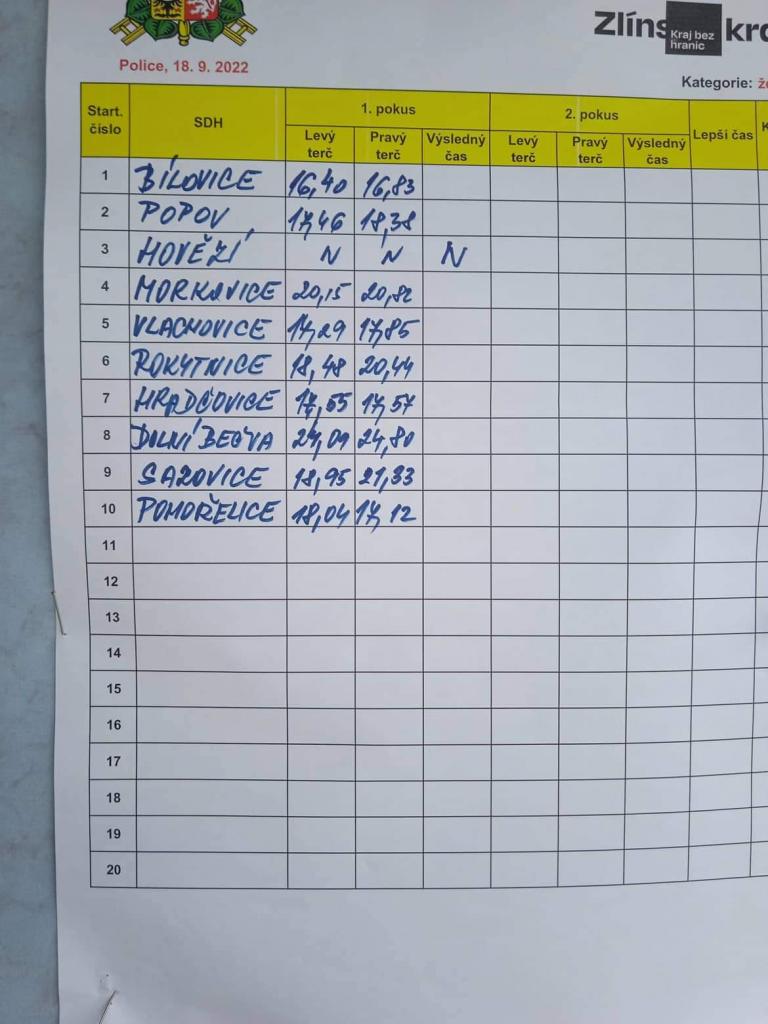 Zlíns kra
Kraj bez
hranic
Police, 18. 9. 2022
Kategorie: ž
Start. číslo SDH 1. pokus 2. pokus Lepší čas K
Levý terč Pravý terč Výsledný čas Levý terč Pravý terč Výsledný čas
1 BÍLOVICE 16,40 16,83
2 POPOV 17,46 18,38
3 HOVĚZÍ N N N
4 MORKOVICE 20,15 20,82
5 VLACHOVICE 17,29 17,85
6 ROKYTNICE 18,48 20,44
7 HRADČOVICE 17,55 17,57
8 DOLNÍ BEČVA 24,80
9 SAZOVICE 18,95 21,33
10 POHOŘELICE 18,04 17,12
11
12
13
14
15
16
17
18
19
20